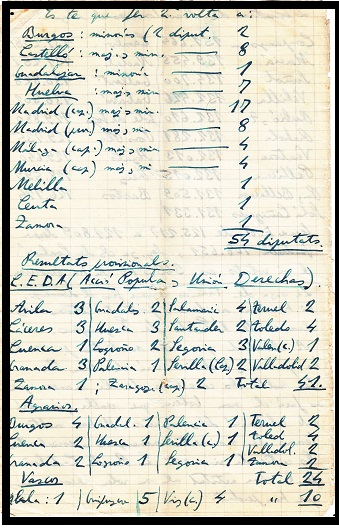 Es te que fer 2ª volta a:
Burgos: minories (2 diput. 2
Castelló: maj. s min. 8
Guadalajar: minoria 1
Huelva: maj. s min 7
Madrid (cap.) maj. s min. 17
Madrid (prov) maj. s min 8
Málaga (cap.) maj. s min 4
Murcia (cap) maj. s mi 4
Melilla 1
Ceuta 1
Zamora 1
54 diputats.
Resultats provisionals.
C.E.D.A (Acció Popular s Unión. Derechas).
Avila 3 Guadalj. 2 Salamanca 4 Teruel 2
Cáceres 3 Huesca 3 Santander 2 Toledo 4
Cuenca 1 Logroño 2 Segovia 3 Valen(c.) 1
Granada 3 Palencia 1 Sevilla (cap) 2 Valladolid 2
Zamora 1; Zaragoza (cap) 2 Total 41.
Agrarios.
Burgos 4 Guadal. 1 Palencia 1 Teruel 2
Cuenca 2 Huesca 1 Sevilla (c.) 1 Toled 4
Valladol. 2
Granada 2 Logroño 1 Segovia 1 Zamora 2
Vascos Total 24
Alaba: 1 Guipuzcoa 5 Viz (c.) 4 " 10